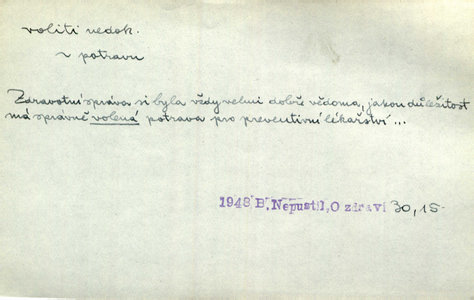 voliti nedok.
~ potravu
Zdravotní správa si byla vždy velmi dobře vědoma, jakou důležitost
má správně volená potrava pro preventivní lékařství...
1948 B. Nepustil, O zdraví 30, 15